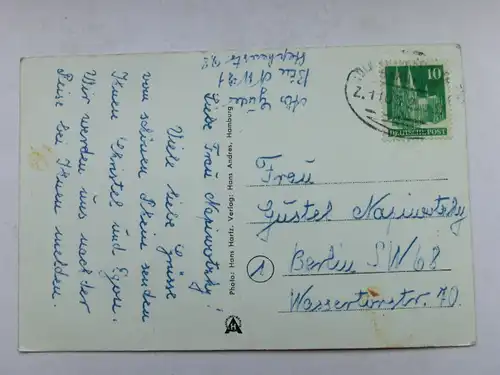 Liebe Frau Napiwotzky!
Viele liebe Grüsse
vom schönen Rhein senden
Ihnen Christel und Egon.
Wir werden uns nach der
Reise bei Ihnen melden.
Photo: Hans Hartz. Verlag: Hans Andres, Hamburg
10
DEUTSCHE POST
Frau
Güstel Napiwotzky
Berlin SW 68
Wassertorstr. 70.